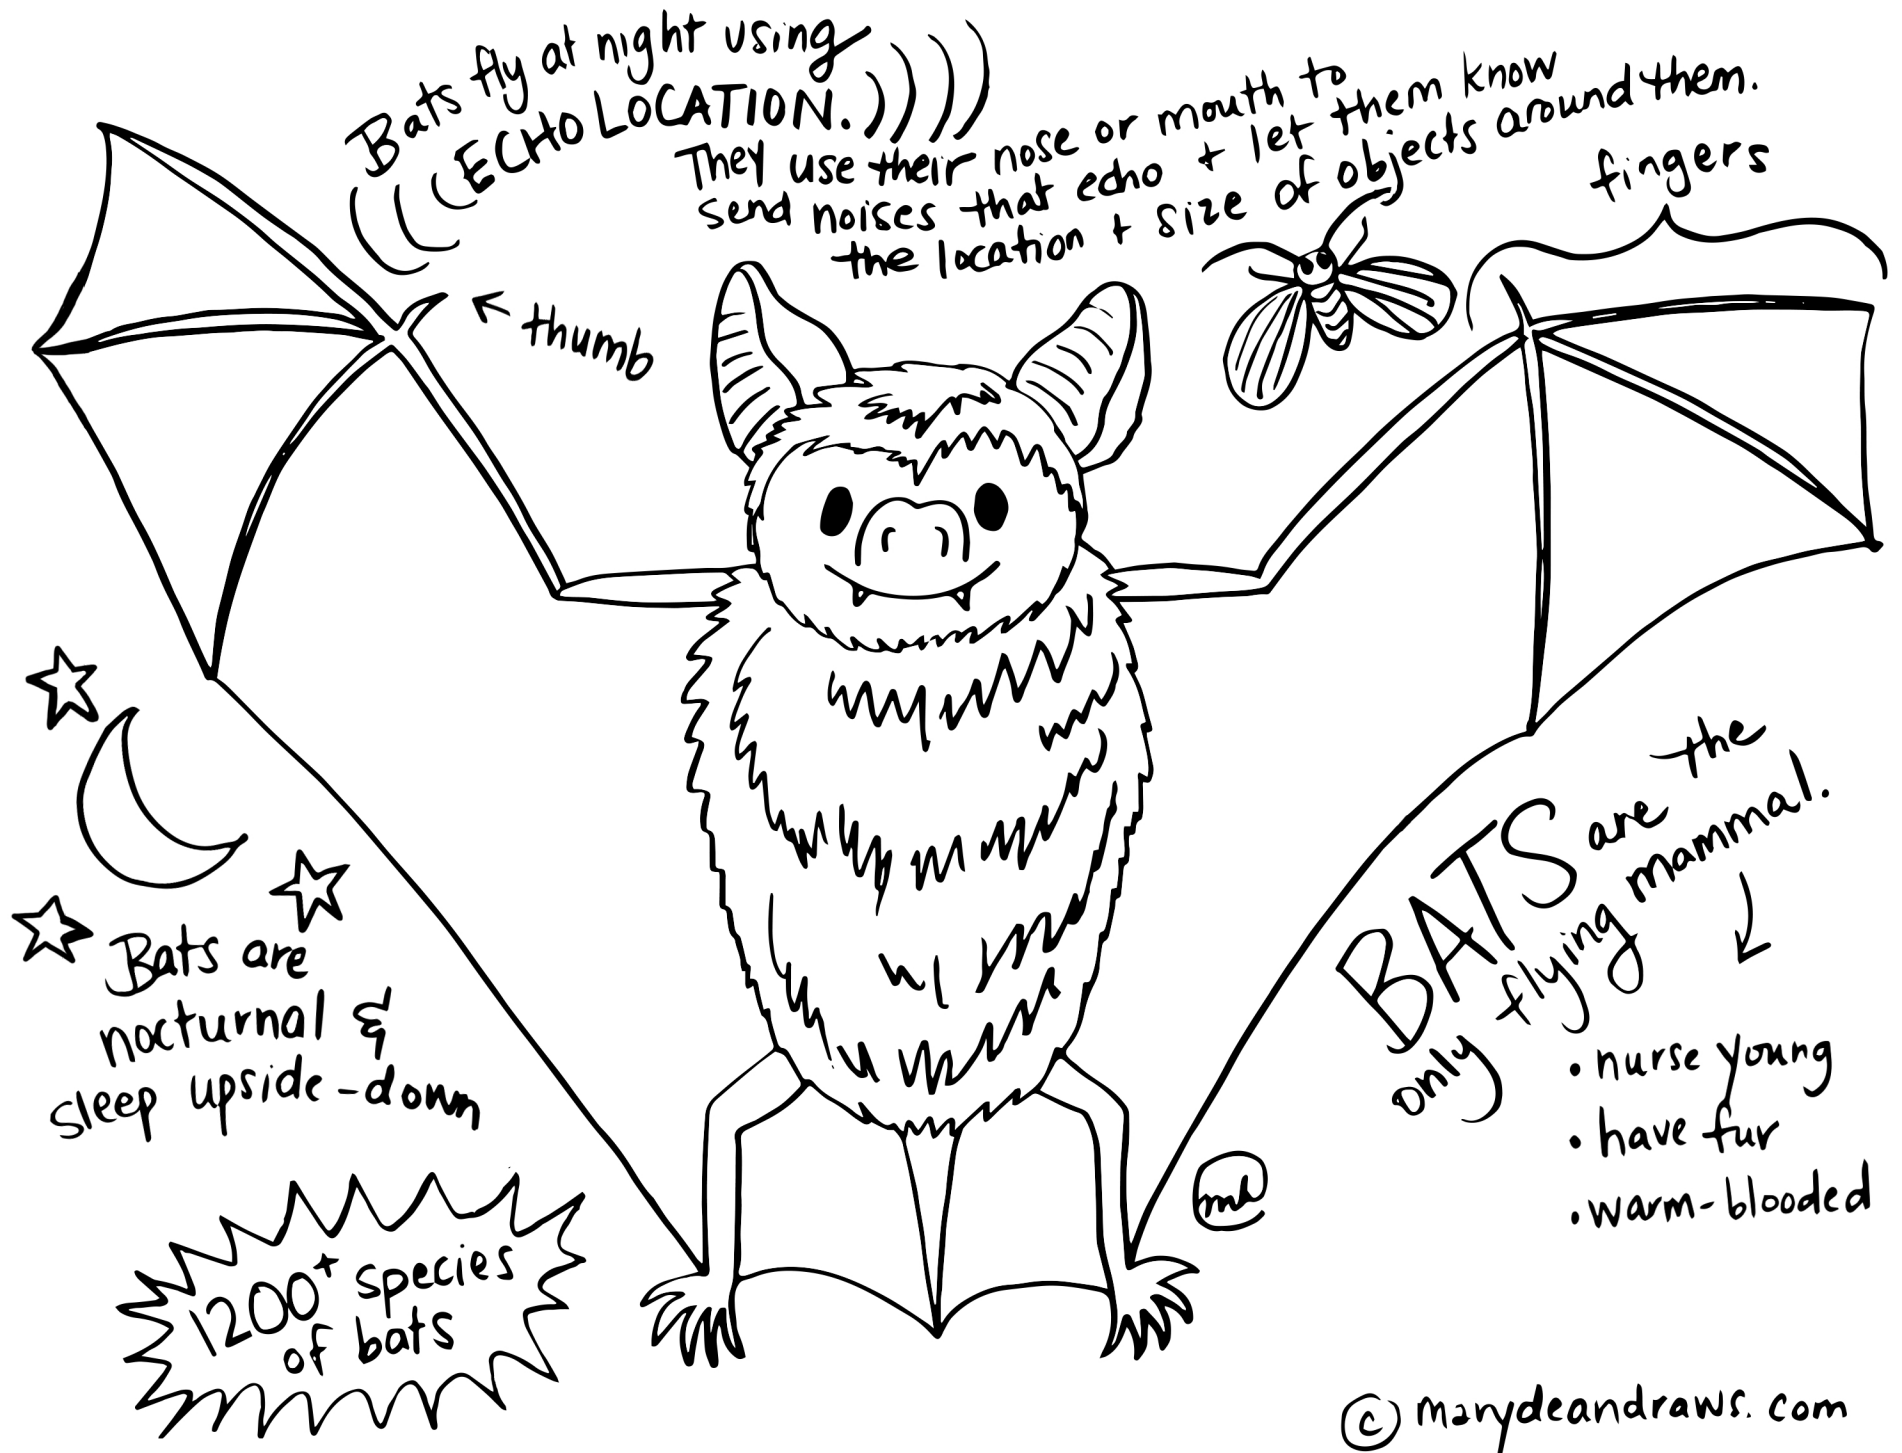 Bats fly at night using
ECHO LOCATION.
They use their nose or mouth to
send noises that echo + let them know
the location + size of objects around them.
fingers
thumb
Bats are
nocturnal &
sleep upside-down
BATS are the
only flying mammal.
• nurse young
• have fur
• warm-blooded
1200+ species
of bats
© marydeandraws.com